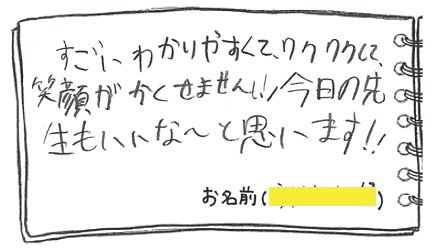 すごいわかりやすくて、ワクワクして、
笑顔がかくせません!!今日の先
生もいいな〜と思います!!
お名前( )